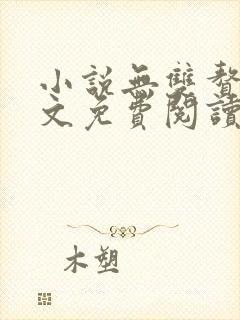 小說無雙贅
文免費閱讀
木塑